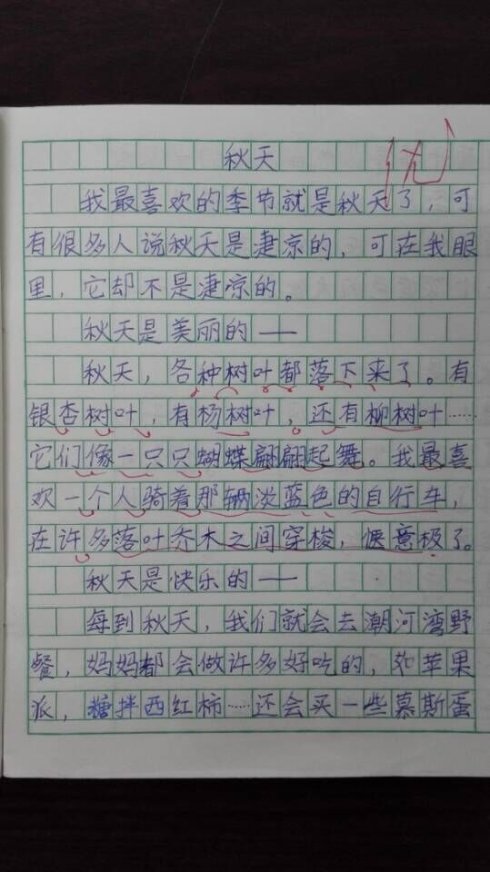 秋天
优
我最喜欢的季节就是秋天了，可
有很多人说秋天是凄凉的，可在我眼
里，它却不是凄凉的。
秋天是美丽的——
秋天，各种树叶都落下来了。有
银杏树叶，有杨树叶，还有柳树叶……
它们像一只只蝴蝶翩翩起舞。我最喜
欢一个人骑着那辆淡蓝色的自行车，
在许多落叶乔木之间穿梭，惬意极了。
秋天是快乐的——
每到秋天，我们就会去潮河湾野
餐，妈妈都会做许多好吃的，苹果
派，糖拌西红柿……还会买一些慕斯蛋